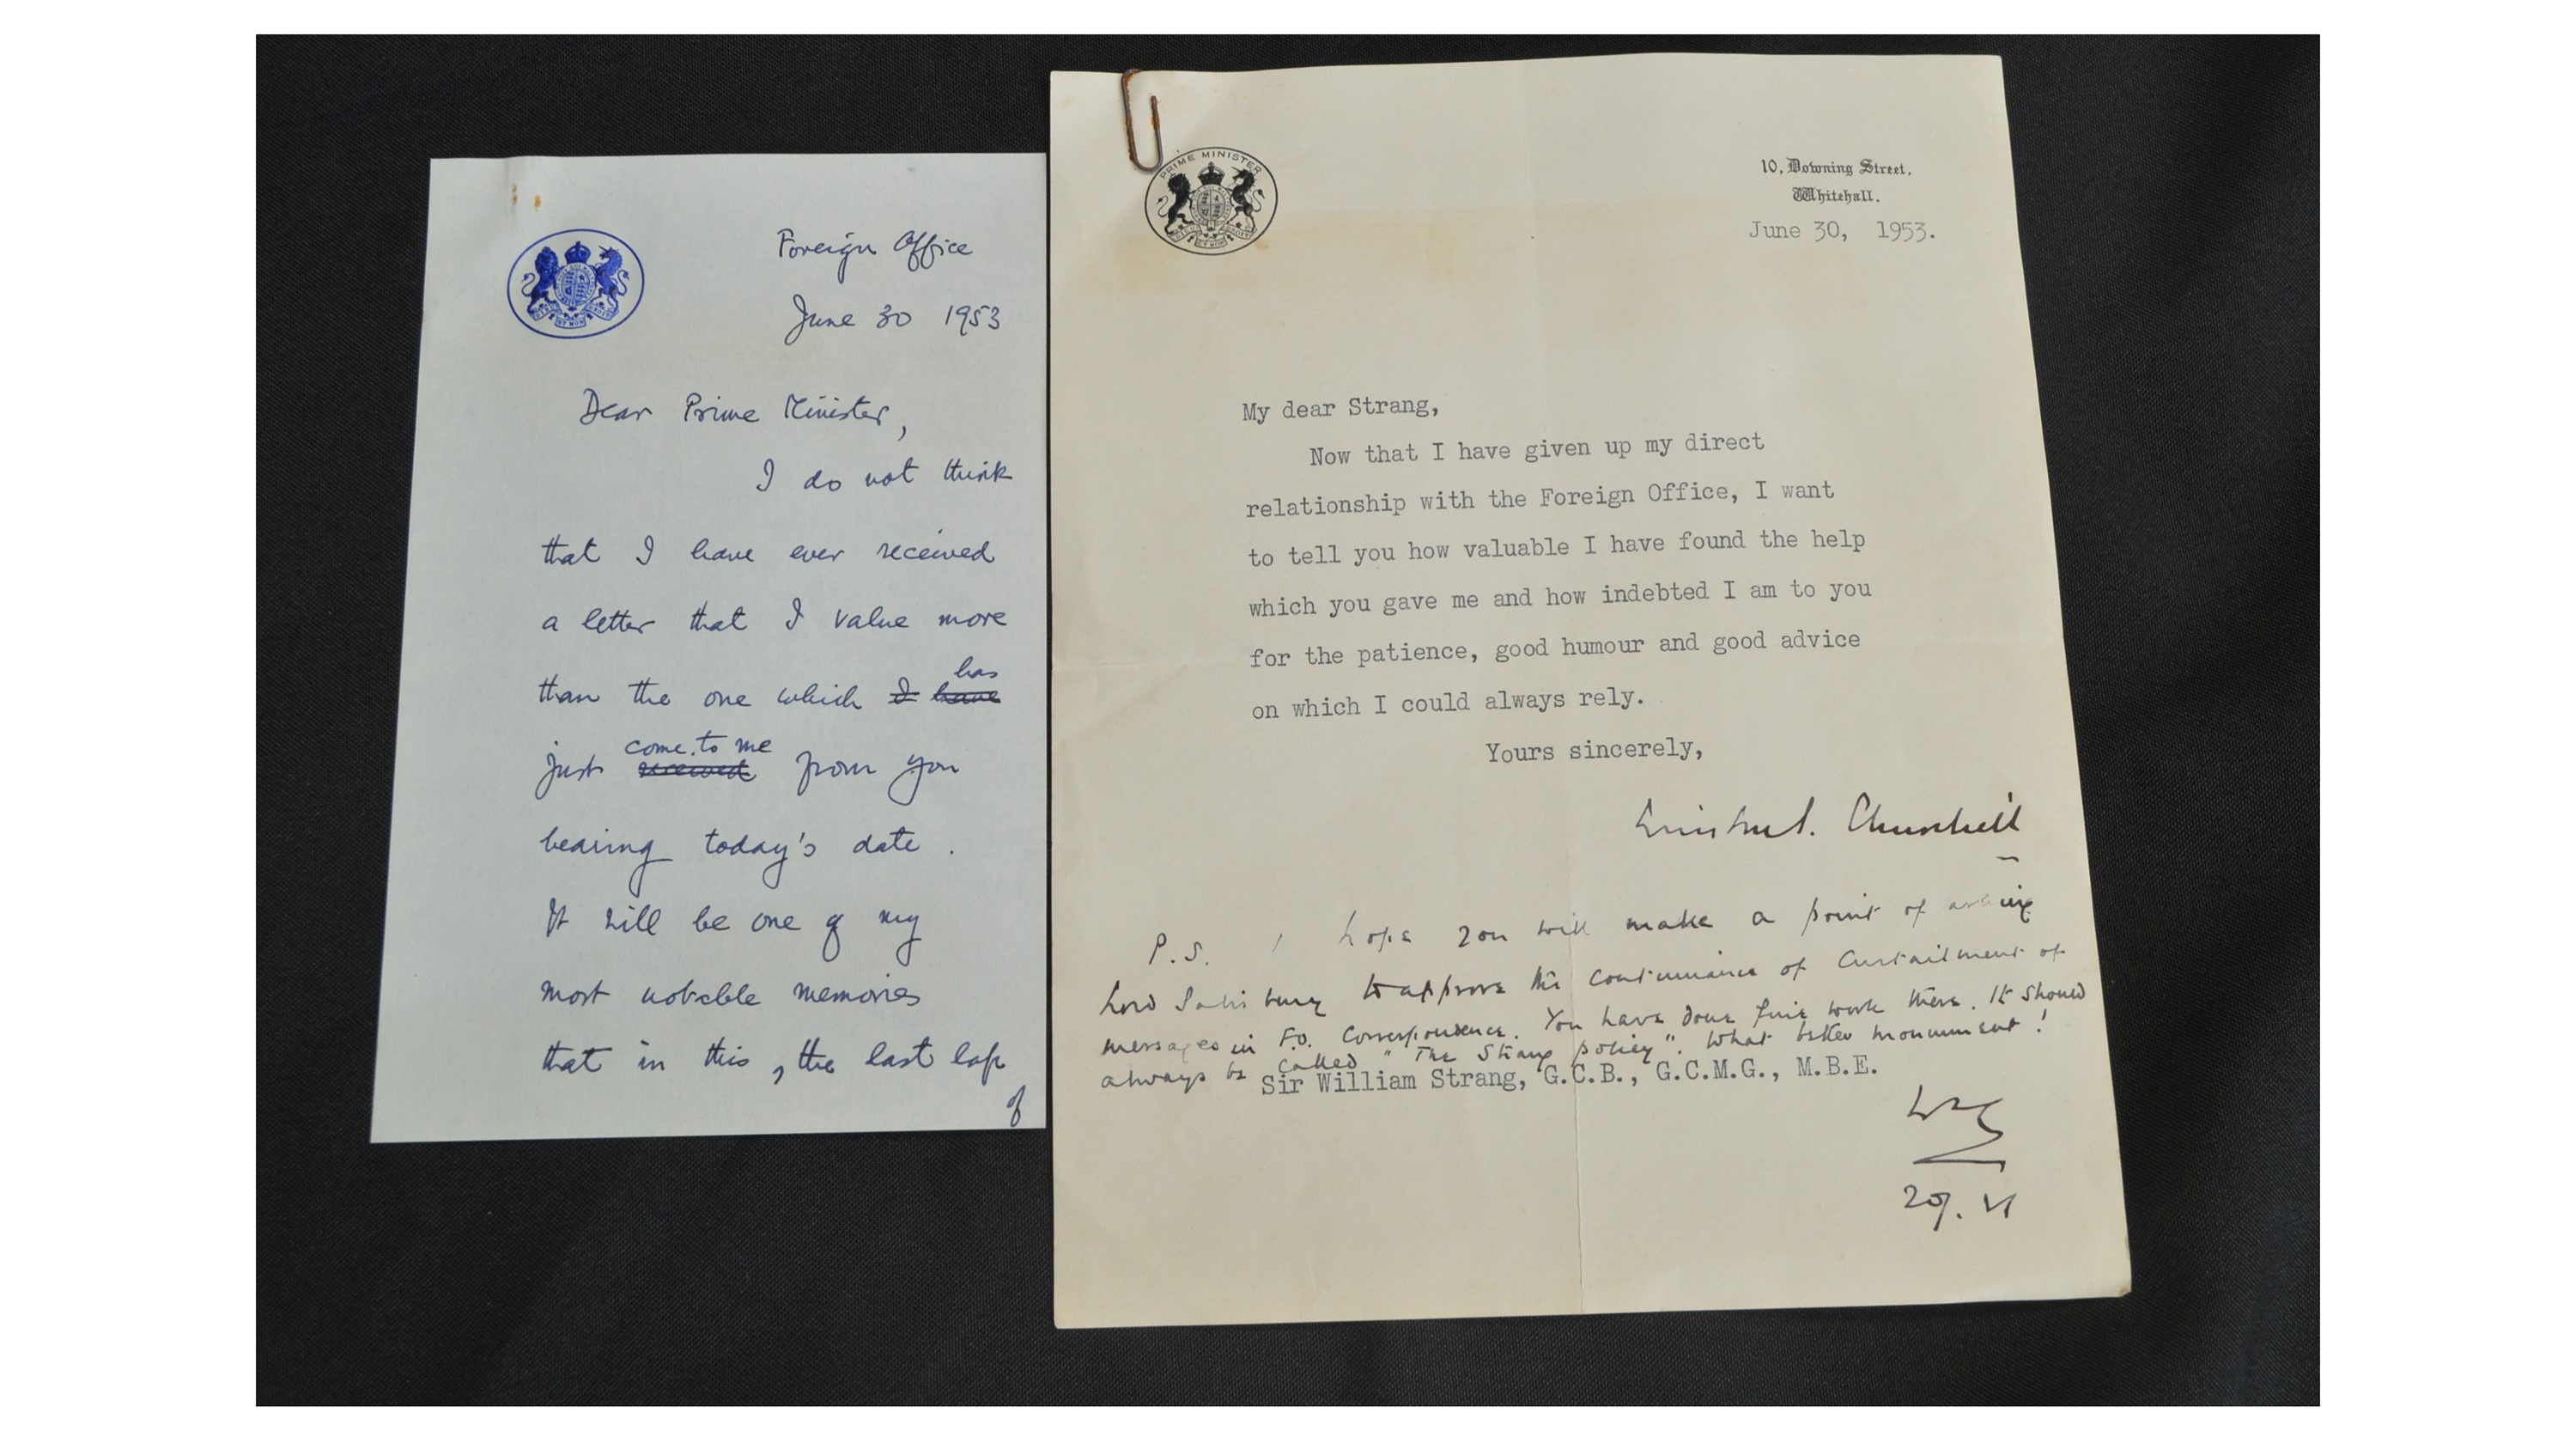 Foreign Office
June 30 1953
Dear Prime Minister,
I do not think
that I have ever received
a letter that I value more
has
than the one which I have
come to me
just received from you
bearing today's date.
It will be one of my
most notable memories
that in this, the last lap
of
PRIME MINISTER
10, Downing Street,
Whitehall.
June 30, 1953.
My dear Strang,
Now that I have given up my direct
relationship with the Foreign Office, I want
to tell you how valuable I have found the help
which you gave me and how indebted I am to you
for the patience, good humour and good advice
on which I could always rely.
Yours sincerely,
Winston S. Churchill
P.S. I hope you will make a point of asking
Lord Salisbury to approve the continuance of Curtailment of
messages in F.O. Correspondence. You have done fine work there. It should
always be called "The Strang policy". What better monument!
Sir William Strang, G.C.B., G.C.M.G., M.B.E.